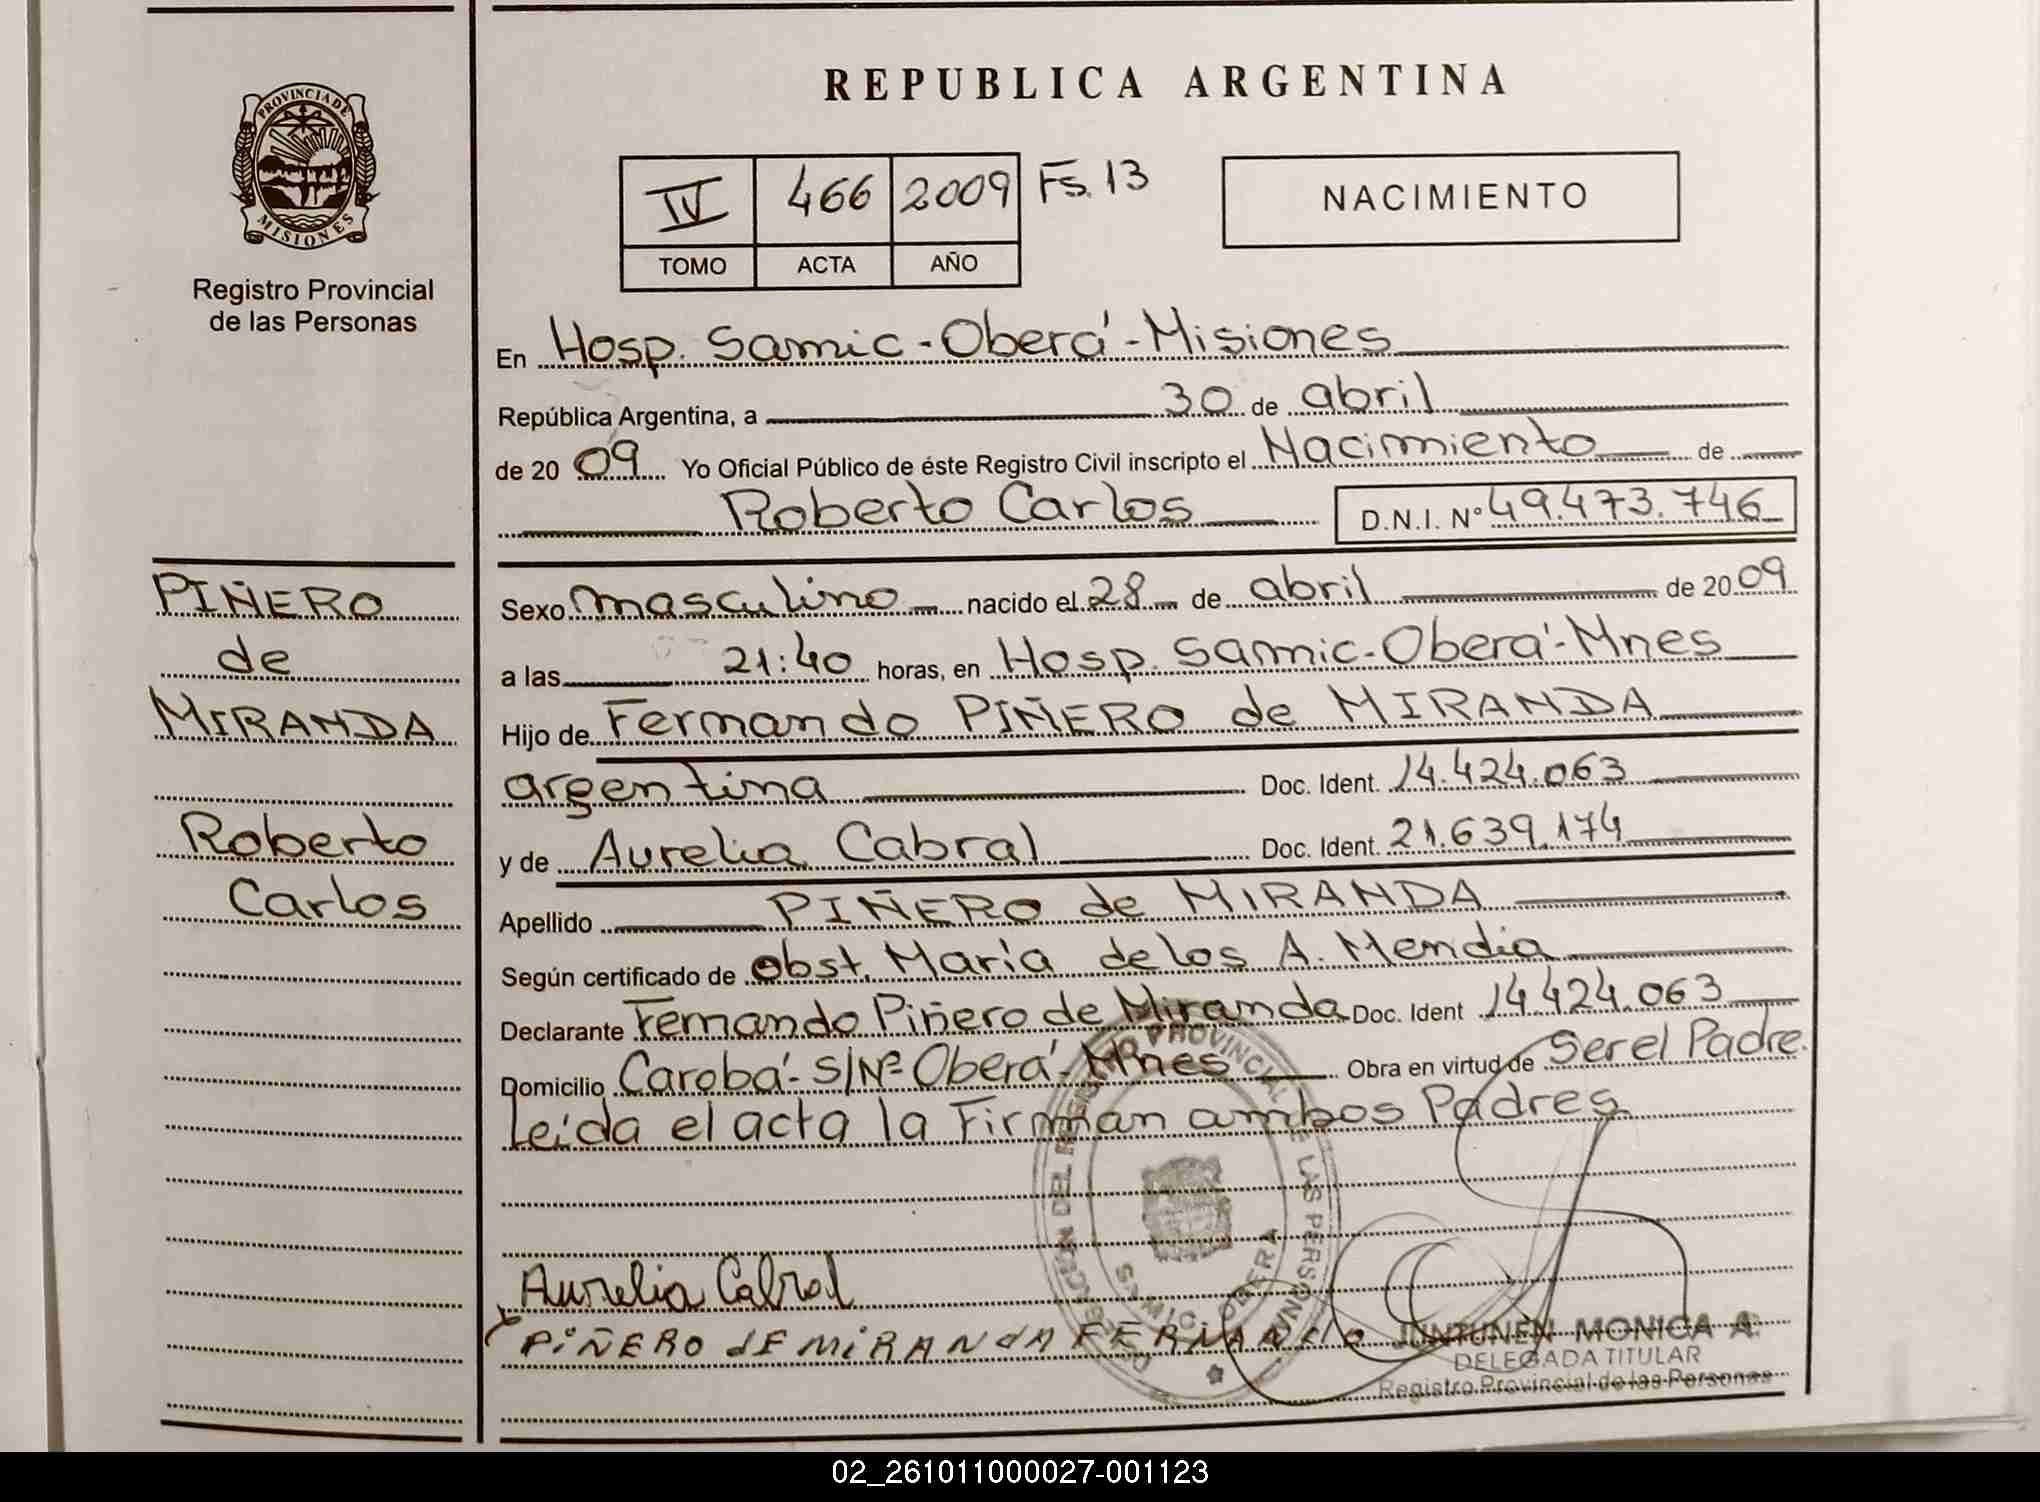 REPUBLICA ARGENTINA
PROVINCIA DE
MISIONES
Registro Provincial
de las Personas
IV 466 2009 Fs. 13
TOMO ACTA AÑO
NACIMIENTO
En Hosp. Samic - Oberá - Misiones
República Argentina, a 30 de abril
de 2009 Yo Oficial Público de éste Registro Civil inscripto el Nacimiento de
Roberto Carlos D.N.I. N° 49.473.746
PIÑERO
de
MIRANDA
Roberto
Carlos
Sexo masculino nacido el 28 de abril de 2009
a las 21:40 horas, en Hosp. Samic - Oberá - Mnes
Hijo de Fernando PIÑERO de MIRANDA
argentina Doc. Ident. 14.424.063
y de Aurelia Cabral Doc. Ident. 21.639.174
Apellido PIÑERO de MIRANDA
Según certificado de obst. María de los A. Mendia
Declarante Fernando Piñero de Miranda Doc. Ident 14.424.063
Domicilio Carobá - S/Nº Oberá - Mnes Obra en virtud de Ser el Padre.
Leída el acta la Firman ambos Padres
Aurelia Cabral
PiÑERO dE MiRANdA FERNANdO
JUNTUNEN MONICA A.
DELEGADA TITULAR
Registro Provincial de las Personas
02_261011000027-001123